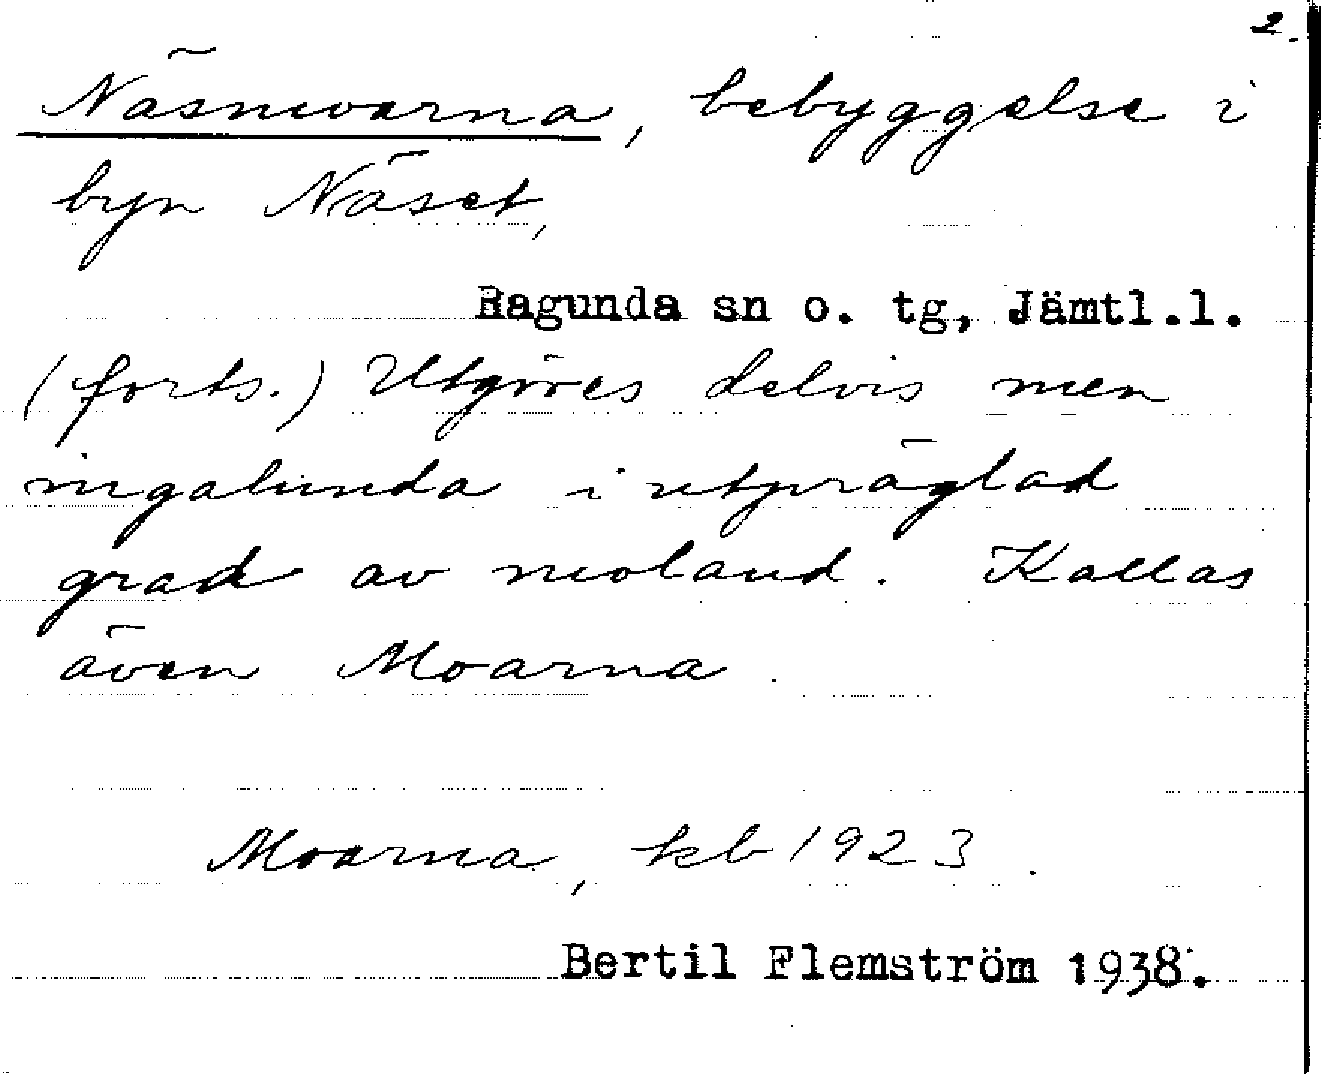 2.
Näsmoarna, bebyggelse i
byn Näset,
Ragunda sn o. tg, Jämtl.l.
(forts.) Utgöres delvis men
ingalunda i utpräglad
grad av moland. Kallas
även Moarna.
Moarna, kb 1923.
Bertil Flemström 1938.